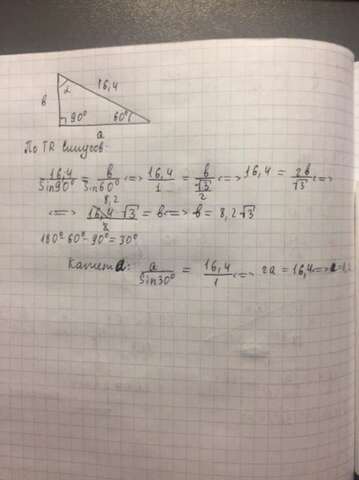 16,4
в
α
90°
60°
a
По TR синусов.
16,4/Sin90° = в/Sin60° <=> 16,4/1 = в/(√3/2) <=> 16,4 = 2в/√3 <=>
8,2
<=> 16,4·√3/2 = в <=> в = 8,2√3
180°-60°-90°=30°
Катет a: a/Sin30° = 16,4/1 <=> 2a = 16,4 <=> a=8,2